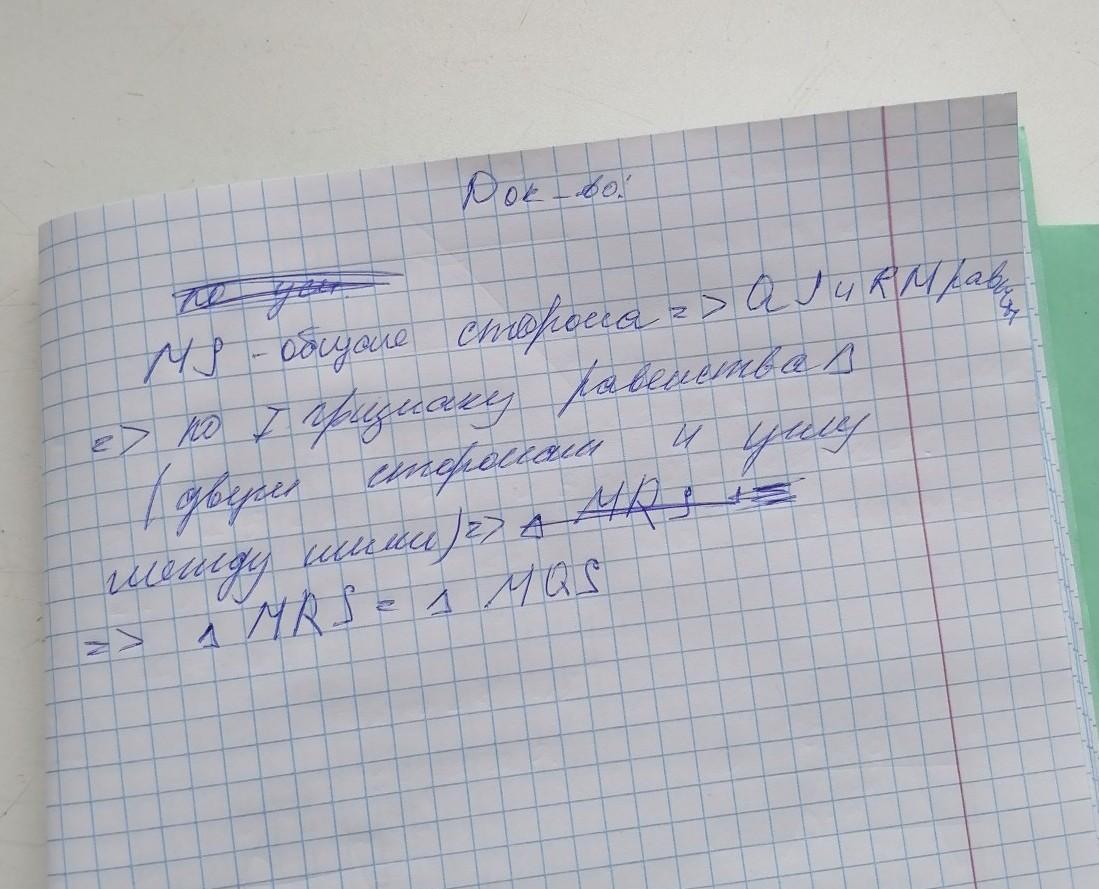 Док-во:
по усл.
MS - общая сторона => QS и RM равны
=> по I признаку равенства Δ
(двум сторонам и углу
между ними) => Δ MRS =
=> Δ MRS = Δ MQS